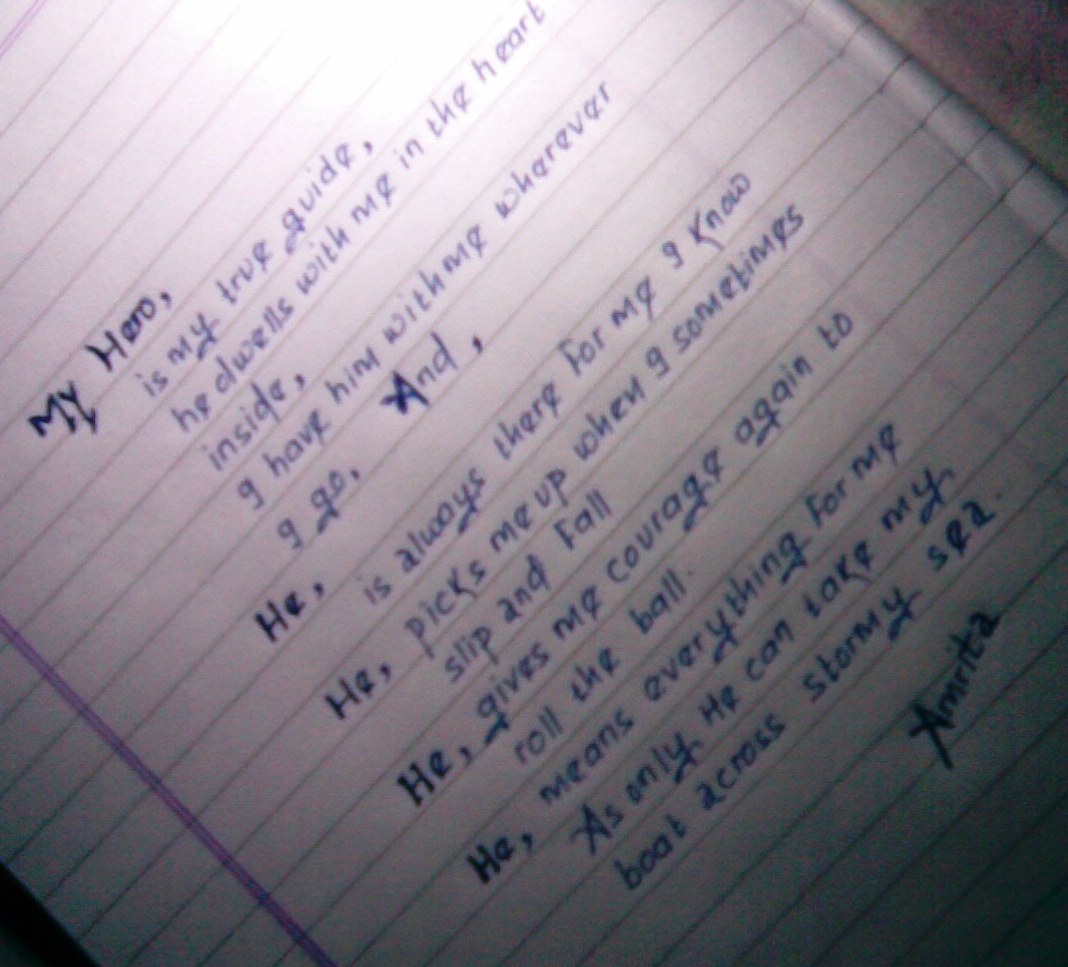 My Hero,
is my true guide,
he dwells with me in the heart
inside,
I have him with me wherever
I go.
And,
He, is always there for me I know
He, picks me up when I sometimes
slip and fall
He, gives me courage again to
roll the ball.
He, means everything for me
As only He can take my
boat across stormy sea.
Amrita